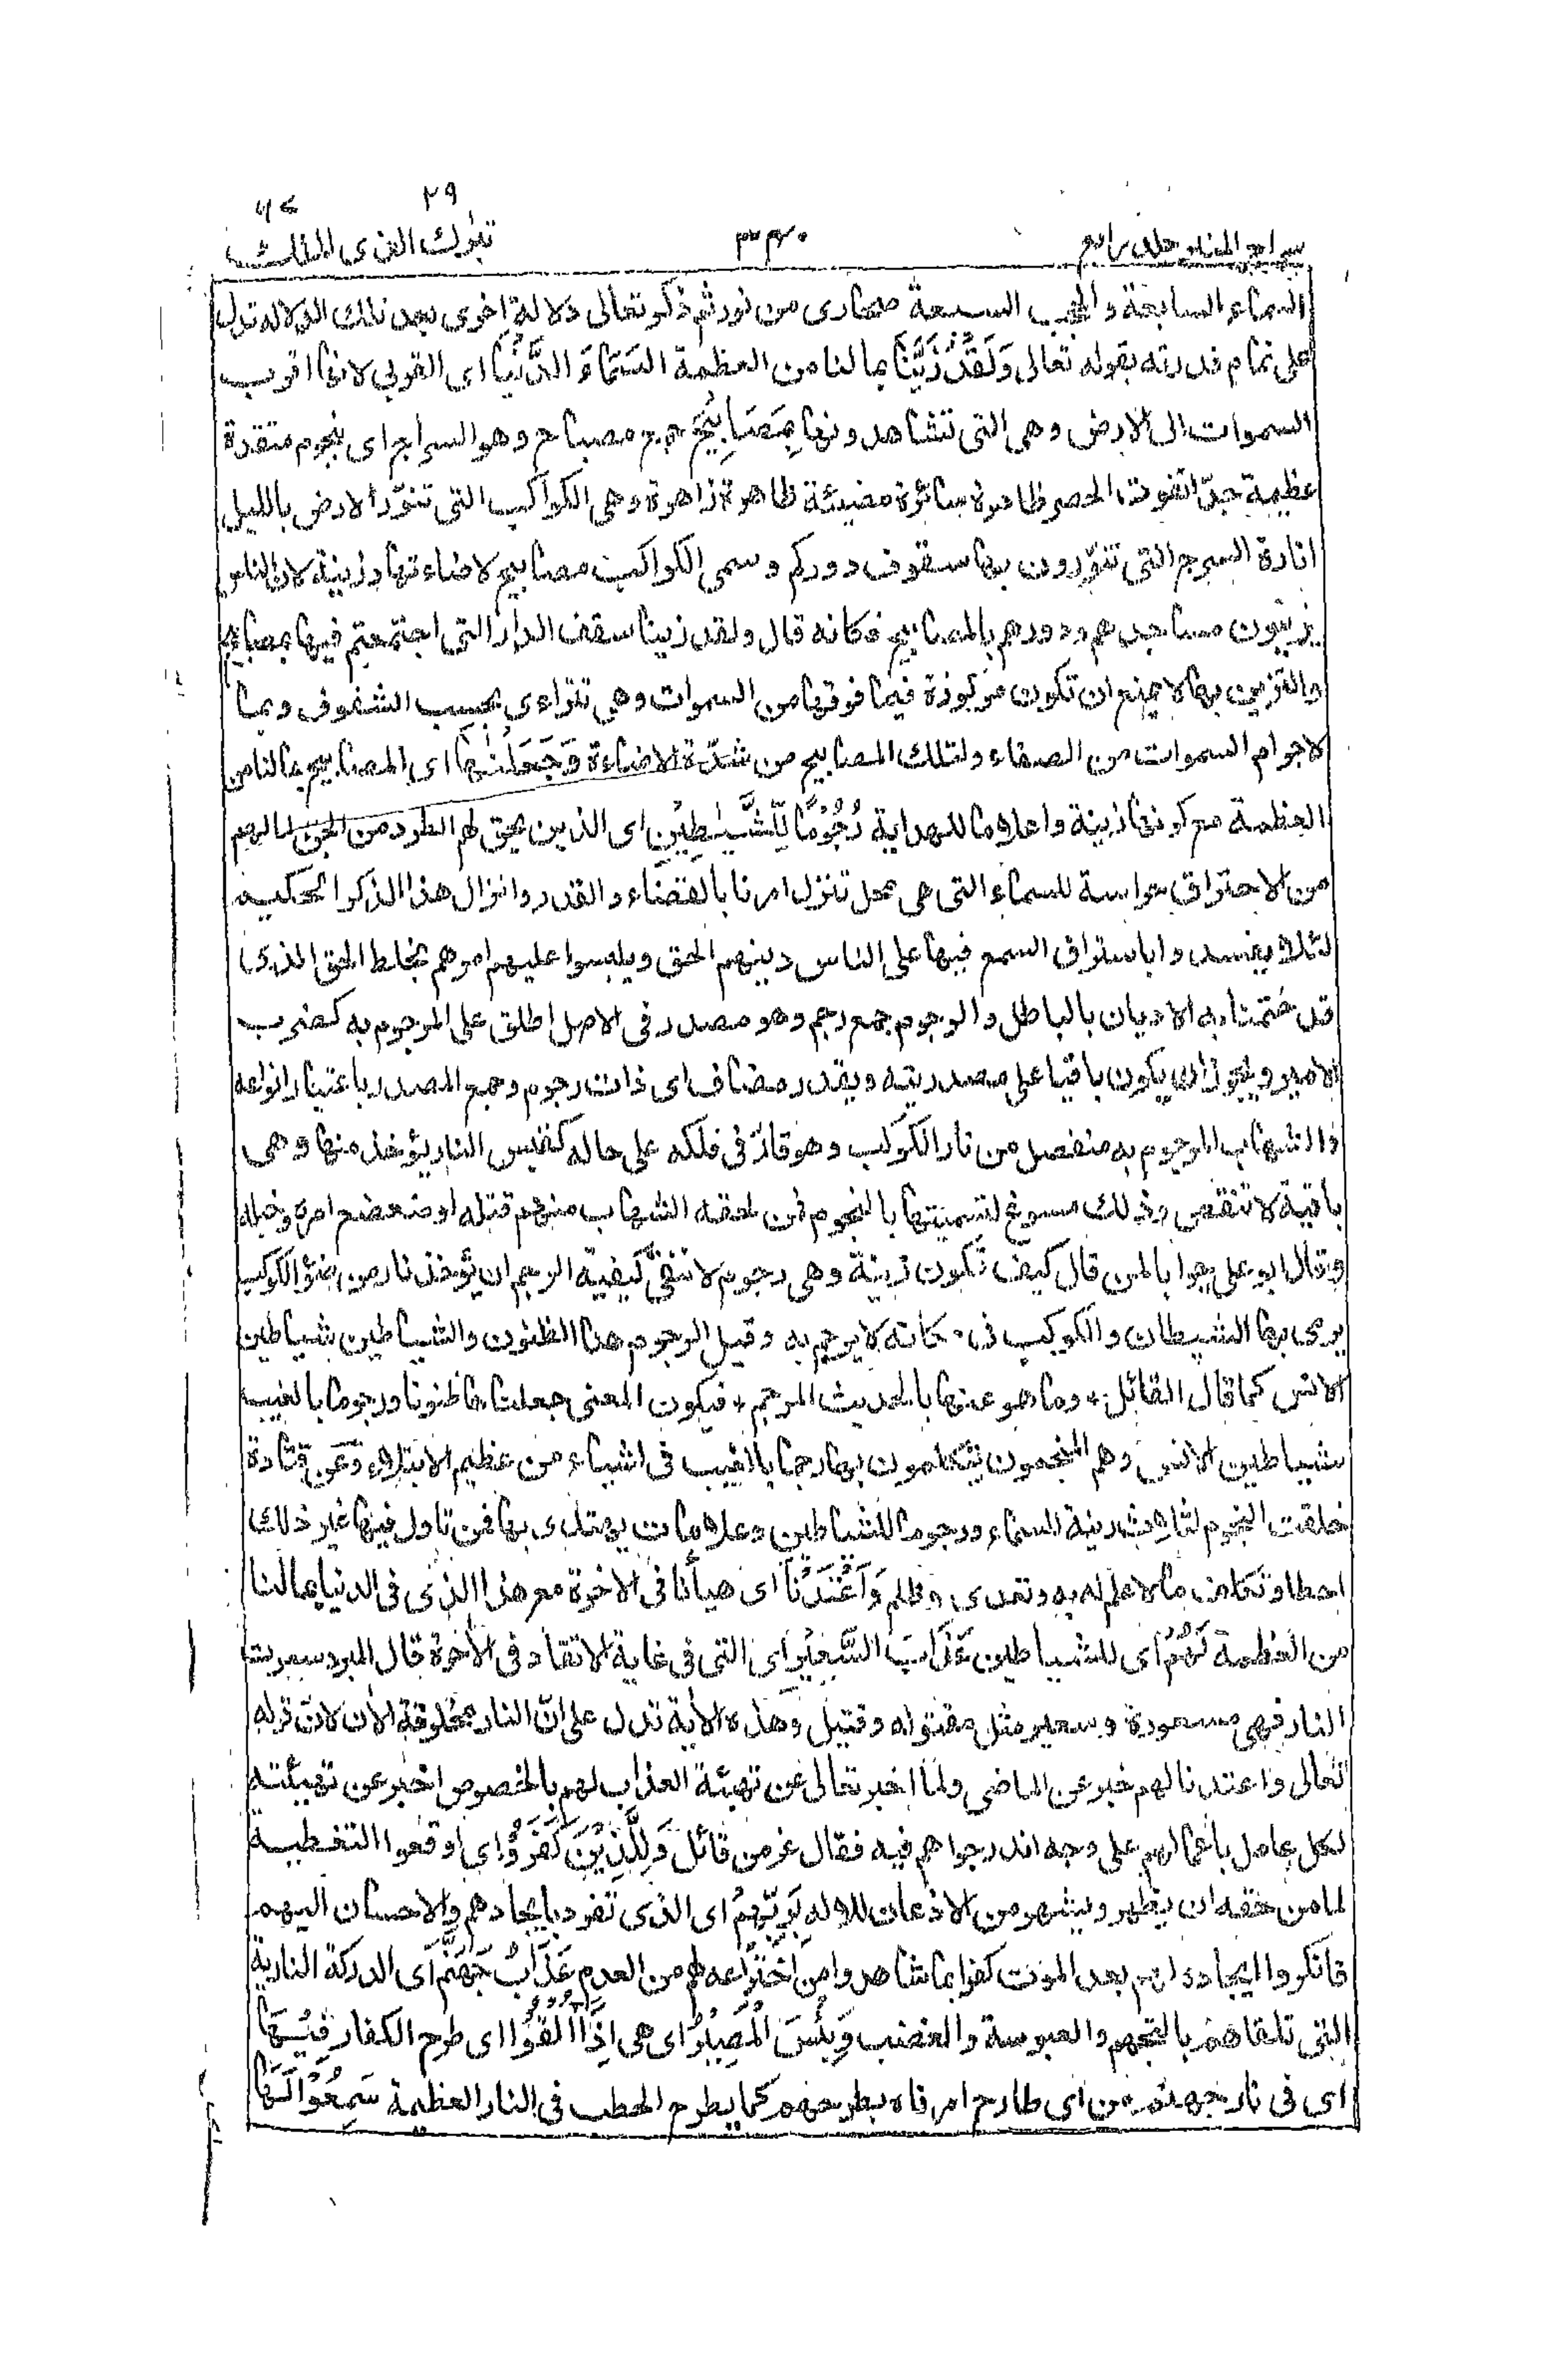 ٢٩ ٦٧
سراج المنير جلد رابع ٣٣٤٠ تبٰرك الذى الملك
السماء السابعة والحجب السبعة صحارى من نور ثم ذكر تعالى دلالة اخرى بعد تلك الدلالة تدل
على تمام قدرته بقوله تعالى وَلَقَدْ زَيَّنَّا بما لنا من العظمة السَّمَاءَ الدُّنْيَا اى القربى لانها اقرب
السموات الى الارض وهى التى تشاهدونها بِمَصَابِيْحَ جمع مصباح وهو السراج اى بنجوم متقدة
عظيمة جدّا تفوت الحصر ظاهرة سائرة مضيئة ظاهرة زاهرة وهى الكواكب التى تنوّر الارض بالليل
انارة السرج التى تنوّرون بها سقوف دوركم وسمى الكواكب مصابيح لاضاءتها وزينة لان الناس
يزينون مساجدهم ودورهم بالمصابيح فكانه قال ولقد زينا سقف الدار التى اجتمعتم فيها بمصابيح
والتزيين بها لا يمنع ان تكون مركوزة فيما فوقها من السموات وهى تتراءى بحسب الشفوف وبما
لاجرام السموات من الصفاء ولتلك المصابيح من شدّة الاضاءة وَجَعَلْنٰهَا اى المصابيح بمالنا من
العظمة مع كونها زينة واعلاما للهداية رُجُوْمًا لِّلشَّيٰطِيْنِ اى الذين يحق لهم الطرد من الجن لمالهم
من الاحتراق حراسة للسماء التى هى محل تنزل امرنا بالقضاء والقدر وانزال هذا الذكر الحكيم
لئلا يفسدوا باستراق السمع فيها على الناس دينهم الحق ويلبسوا عليهم امرهم بخلط الحق الذى
قد ختمنا به الاديان بالباطل والرجوم جمع رجم وهو مصدر فى الاصل اطلق على المرجوم به كضرب
الامير ويجوز ان يكون باقيا على مصدريته ويقدر مضاف اى ذات رجوم وجمع المصدر باعتبار انواعه
والشهاب المرجوم به منفصل من نار الكوكب وهو قارّ فى فلكه على حاله كقبس النار يؤخذ منها وهى
باقية لا تنقص وذلك مسوغ لتسميتها بالنجوم فمن لحقه الشهاب منهم قتله او ضعضع امره وخبله
وقال ابو على جوابا لمن قال كيف تكون زينة وهى رجوم لا تبقى كيفية الرجم ان يؤخذ نار من ضوء الكوكب
يرمى بها الشيطان والكوكب فى مكانه لا يرجم به وقيل الرجوم هنا الظنون والشياطين شياطين
الانس كما قال القائل ٭ وما هو عنها بالحديث المرجم ٭ فيكون المعنى جعلناها ظنونا ورجوما بالغيب
شياطين الانس وهم المنجمون يتكلمون بها رجما بالغيب فى اشياء من عظيم الابتلاء وعن قتادة
خلقت النجوم لثلاث زينة للسماء ورجوما للشياطين وعلامات يهتدى بها فمن تاول فيها غير ذلك
اخطا وتكلف ما لا علم له به وتعدى وظلم وَاَعْتَدْنَا اى هيأنا فى الاخرة مع هذا الذى فى الدنيا بمالنا
من العظمة لَهُمْ اى للشياطين عَذَابَ السَّعِيْرِ اى التى فى غاية الاتقاد فى الأخرة قال المبرد سعرت
النار فهى مسعورة وسعير مثل مقتوله وقتيل وهذه الأية تدل على انّ النار مخلوقة الأن لانّ قوله
تعالى واعتدنا لهم خبر عن الماضى ولما اخبر تعالى عن تهيئة العذاب لهم بالخصوص اخبر عن تهيئته
لكل عامل باعمالهم على وجه اندرجوا هم فيه فقال عز من قائل وَلِلَّذِيْنَ كَفَرُوْا اى اوقعوا التغطية
لما من حقه ان يظهر ويشهر من الاذعان للاله بِرَبِّهِمْ اى الذى تفرد بايجادهم والاحسان اليهم
فانكروا ايجاده لهم بعد الموت كفرا بما شاهدوا من اختراعه لهم من العدم عَذَابُ جَهَنَّمَ اى الدركة النارية
التى تلقاهم بالتجهم والعبوسة والغضب وَبِئْسَ الْمَصِيْرُ اى هى اِذَا اُلْقُوْا اى طرح الكفار فِيْهَا
اى فى نار جهنم من اى طارح امرناه بطرحهم كما يطرح الحطب فى النار العظيمة سَمِعُوْا لَهَا